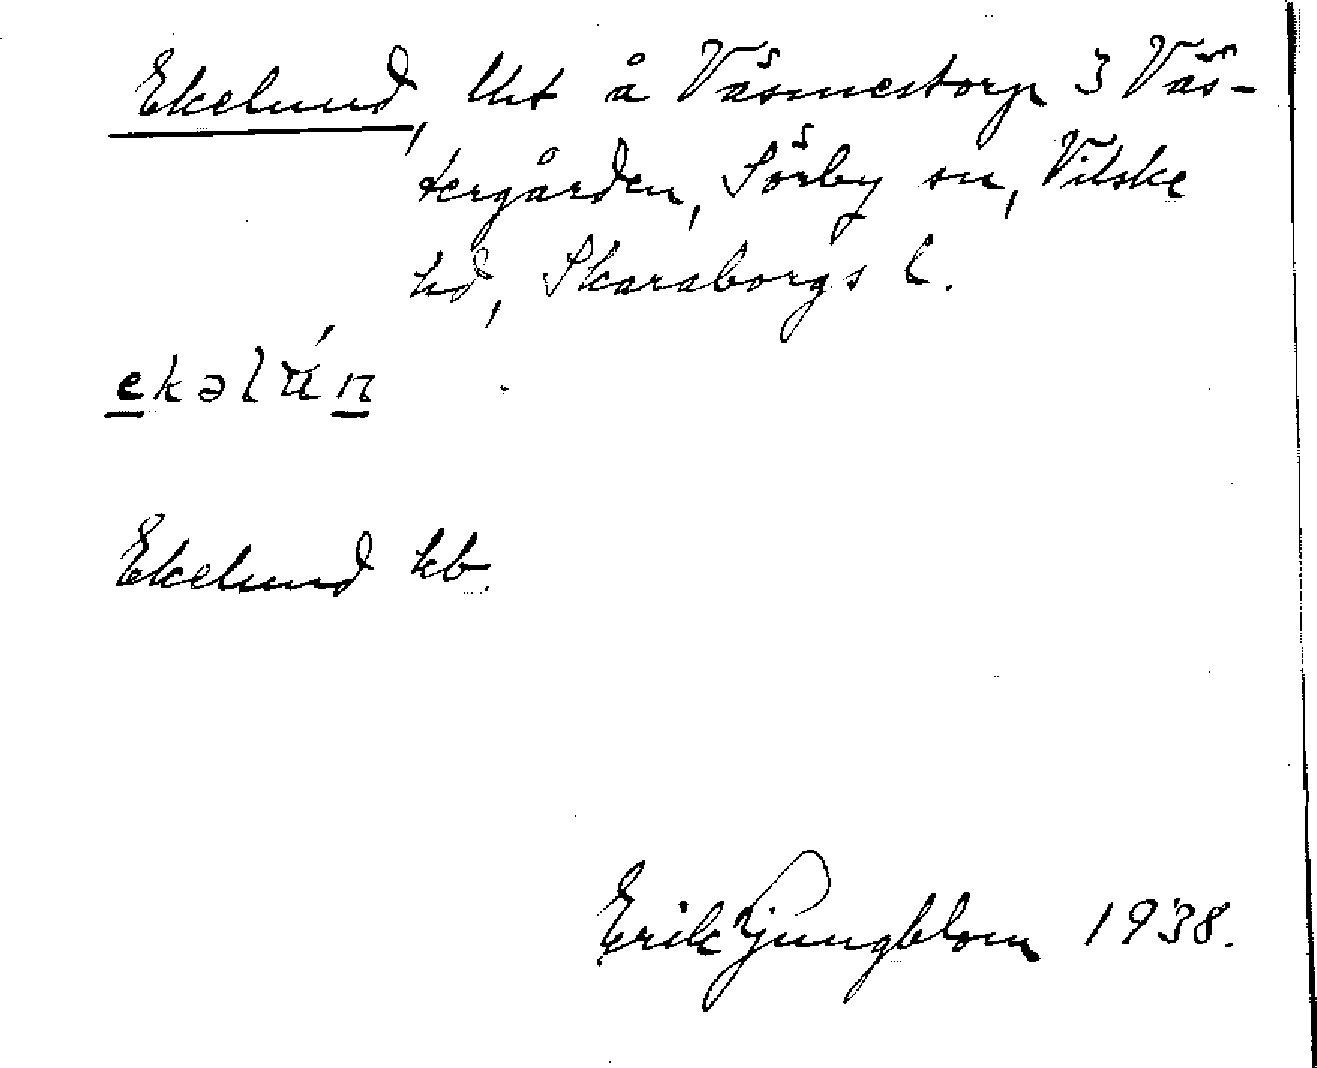 Ekelund, lht å Väsmestorp 3 Väs-
tergården, Sörby sn, Vilske
hd, Skaraborgs l.
ekəlún
Ekelund kb.
Erik Ljungblom 1938.